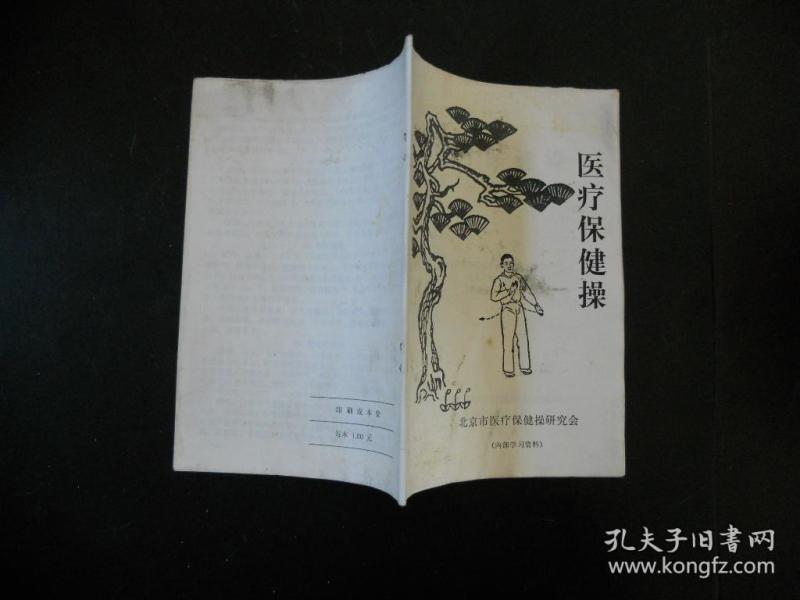 医疗保健操
北京市医疗保健操研究会
(内部学习资料)
印刷成本费
每本 1.00 元
孔夫子旧书网
www.kongfz.com